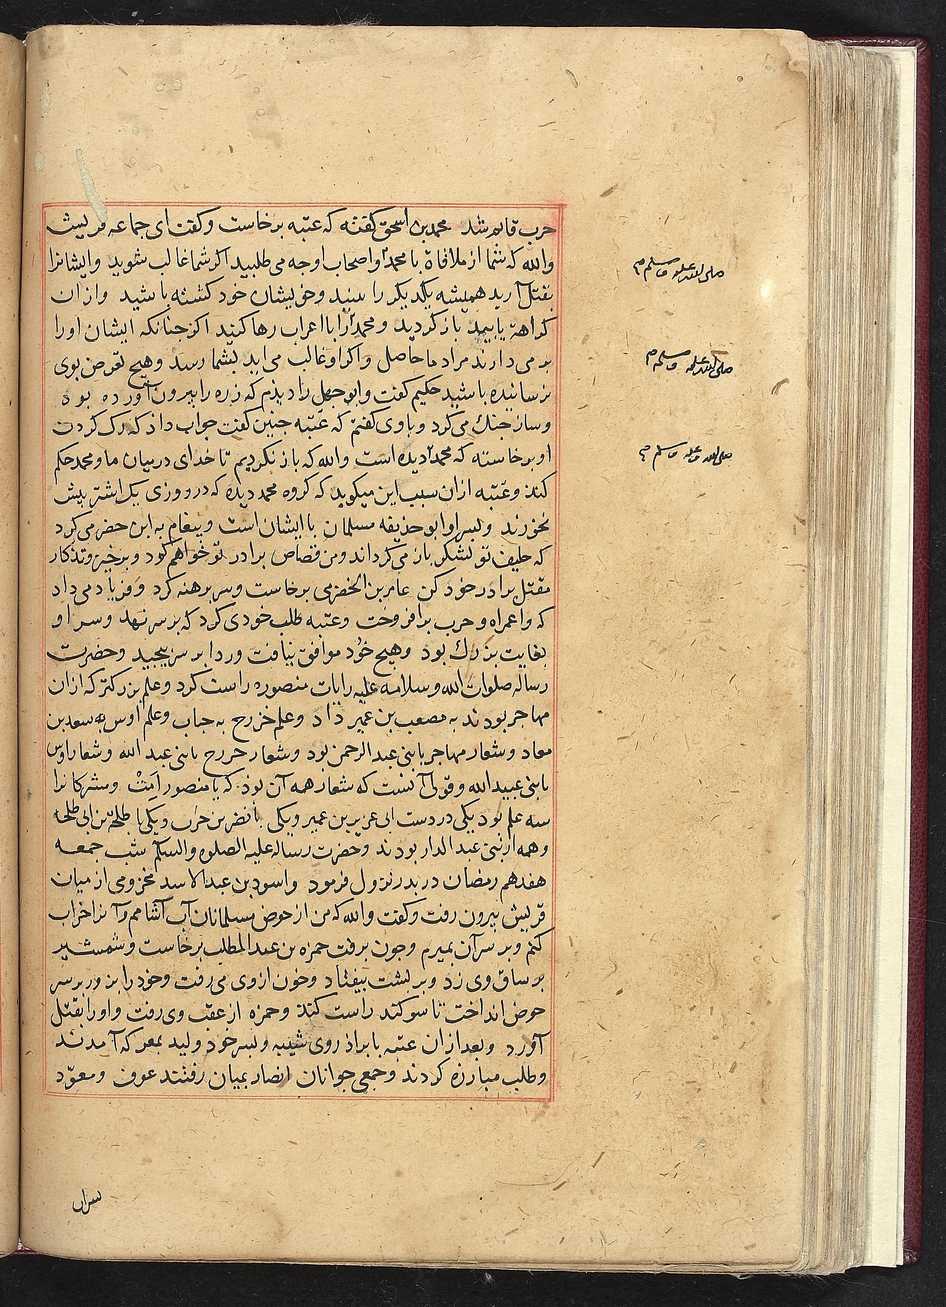 حرب قایم شد محمد بن اسحق گفته که عتبه برخاست و کفت ای جماعه قریش
والله که شما از ملاقاة با محمد و اصحاب او چه می طلبید اکر شما غالب شوید و ایشانرا
بقتل آرید همیشه یکدیکر را بینید و خویشان خود کشته باشید و از ان
کراهة یابید باز کردید و محمد را با اعراب رها کنید اکر چنانکه ایشان او را
بر می دارند مراد ما حاصل و اکر او غالب می اید بشما رسد و هیچ تعرض بوی
نرسانیده باشید حکیم کفت و ابو جهل را دیدم که زره را بیرون آورده بود
و ساز جنك می کرد و با وی کفتم که عتبه چنین کفت جواب داد که رک کردن
او برخاسته که محمد را دیده است والله که باز نکردیم تا خدای در میان ما و محمد حکم
کند و عتبه ازان سبب این میکوید که کروه محمد دیده که در روزی یک اشتر بیش
نخورند و پسر او ابو حذیفه مسلمان با ایشان است و پیغام به ابن حضرمی کرد
که حلیف تو لشکر باز می کرداند و من قصاص برادر تو خواهم و برخیز و تذکار
مقتل برادر خود کن عامر بن الحضرمی برخاست و سر برهنه کرد و فریاد می داد
که واعمراه و حرب برافروخت و عتبه طلب خودی کرد که بر سر نهد و سر او
بغایت بزرك بود و هیچ خود موافق نیافت و ردا بر سر پیچید و حضرت
رسالة صلوات الله و سلامه علیه رایات منصوره راست کرد و علم بزرکتر که ازان
مهاجر بودند به مصعب بن عمیر داد و علم خزرج به حباب و علم اوس به سعد بن
معاد و شعار مهاجر یا بنی عبد الرحمن بود و شعار خزرج یا بنی عبد الله و شعار اوس
یا بنی عبید الله و قولی آنست که شعار همه آن بود که یا منصور اَمِتْ و مشرکانرا
سه علم بود یکی در دست ابی عزیز بن عمیر و یکی با نضر بن حرب و یکی با طلحة بن ابی طلحة
و همه از بنی عبد الدار بودند و حضرت رساله علیه الصلوه والسلم شب جمعه
هفدهم رمضان در بدر نزول فرمود و اسود بن عبد الاسد مخزومی از میان
قریش بیرون رفت و کفت والله که من از حوض مسلمانان آب آشامم و آنرا خراب
کنم و بر سر آن بمیرم و چون برفت حمزه بن عبد المطلب برخاست و شمشیر
بر ساق وی زد و بر پشت بیفتاد و خون از وی می رفت و خود را بزور بر سر
حوض انداخت تا سوکند راست کند و حمزه از عقب وی رفت و او را بقتل
آورد و بعد از ان عتبه با برادر وی شیبه و پسر خود ولید بمعرکه آمدند
و طلب مبارزه کردند و جمعی جوانان انصار بمیان رفتند عوف و معوّد
صلی الله علیه و سلم
صلی الله علیه و سلم
صلی الله علیه و سلم
پسران